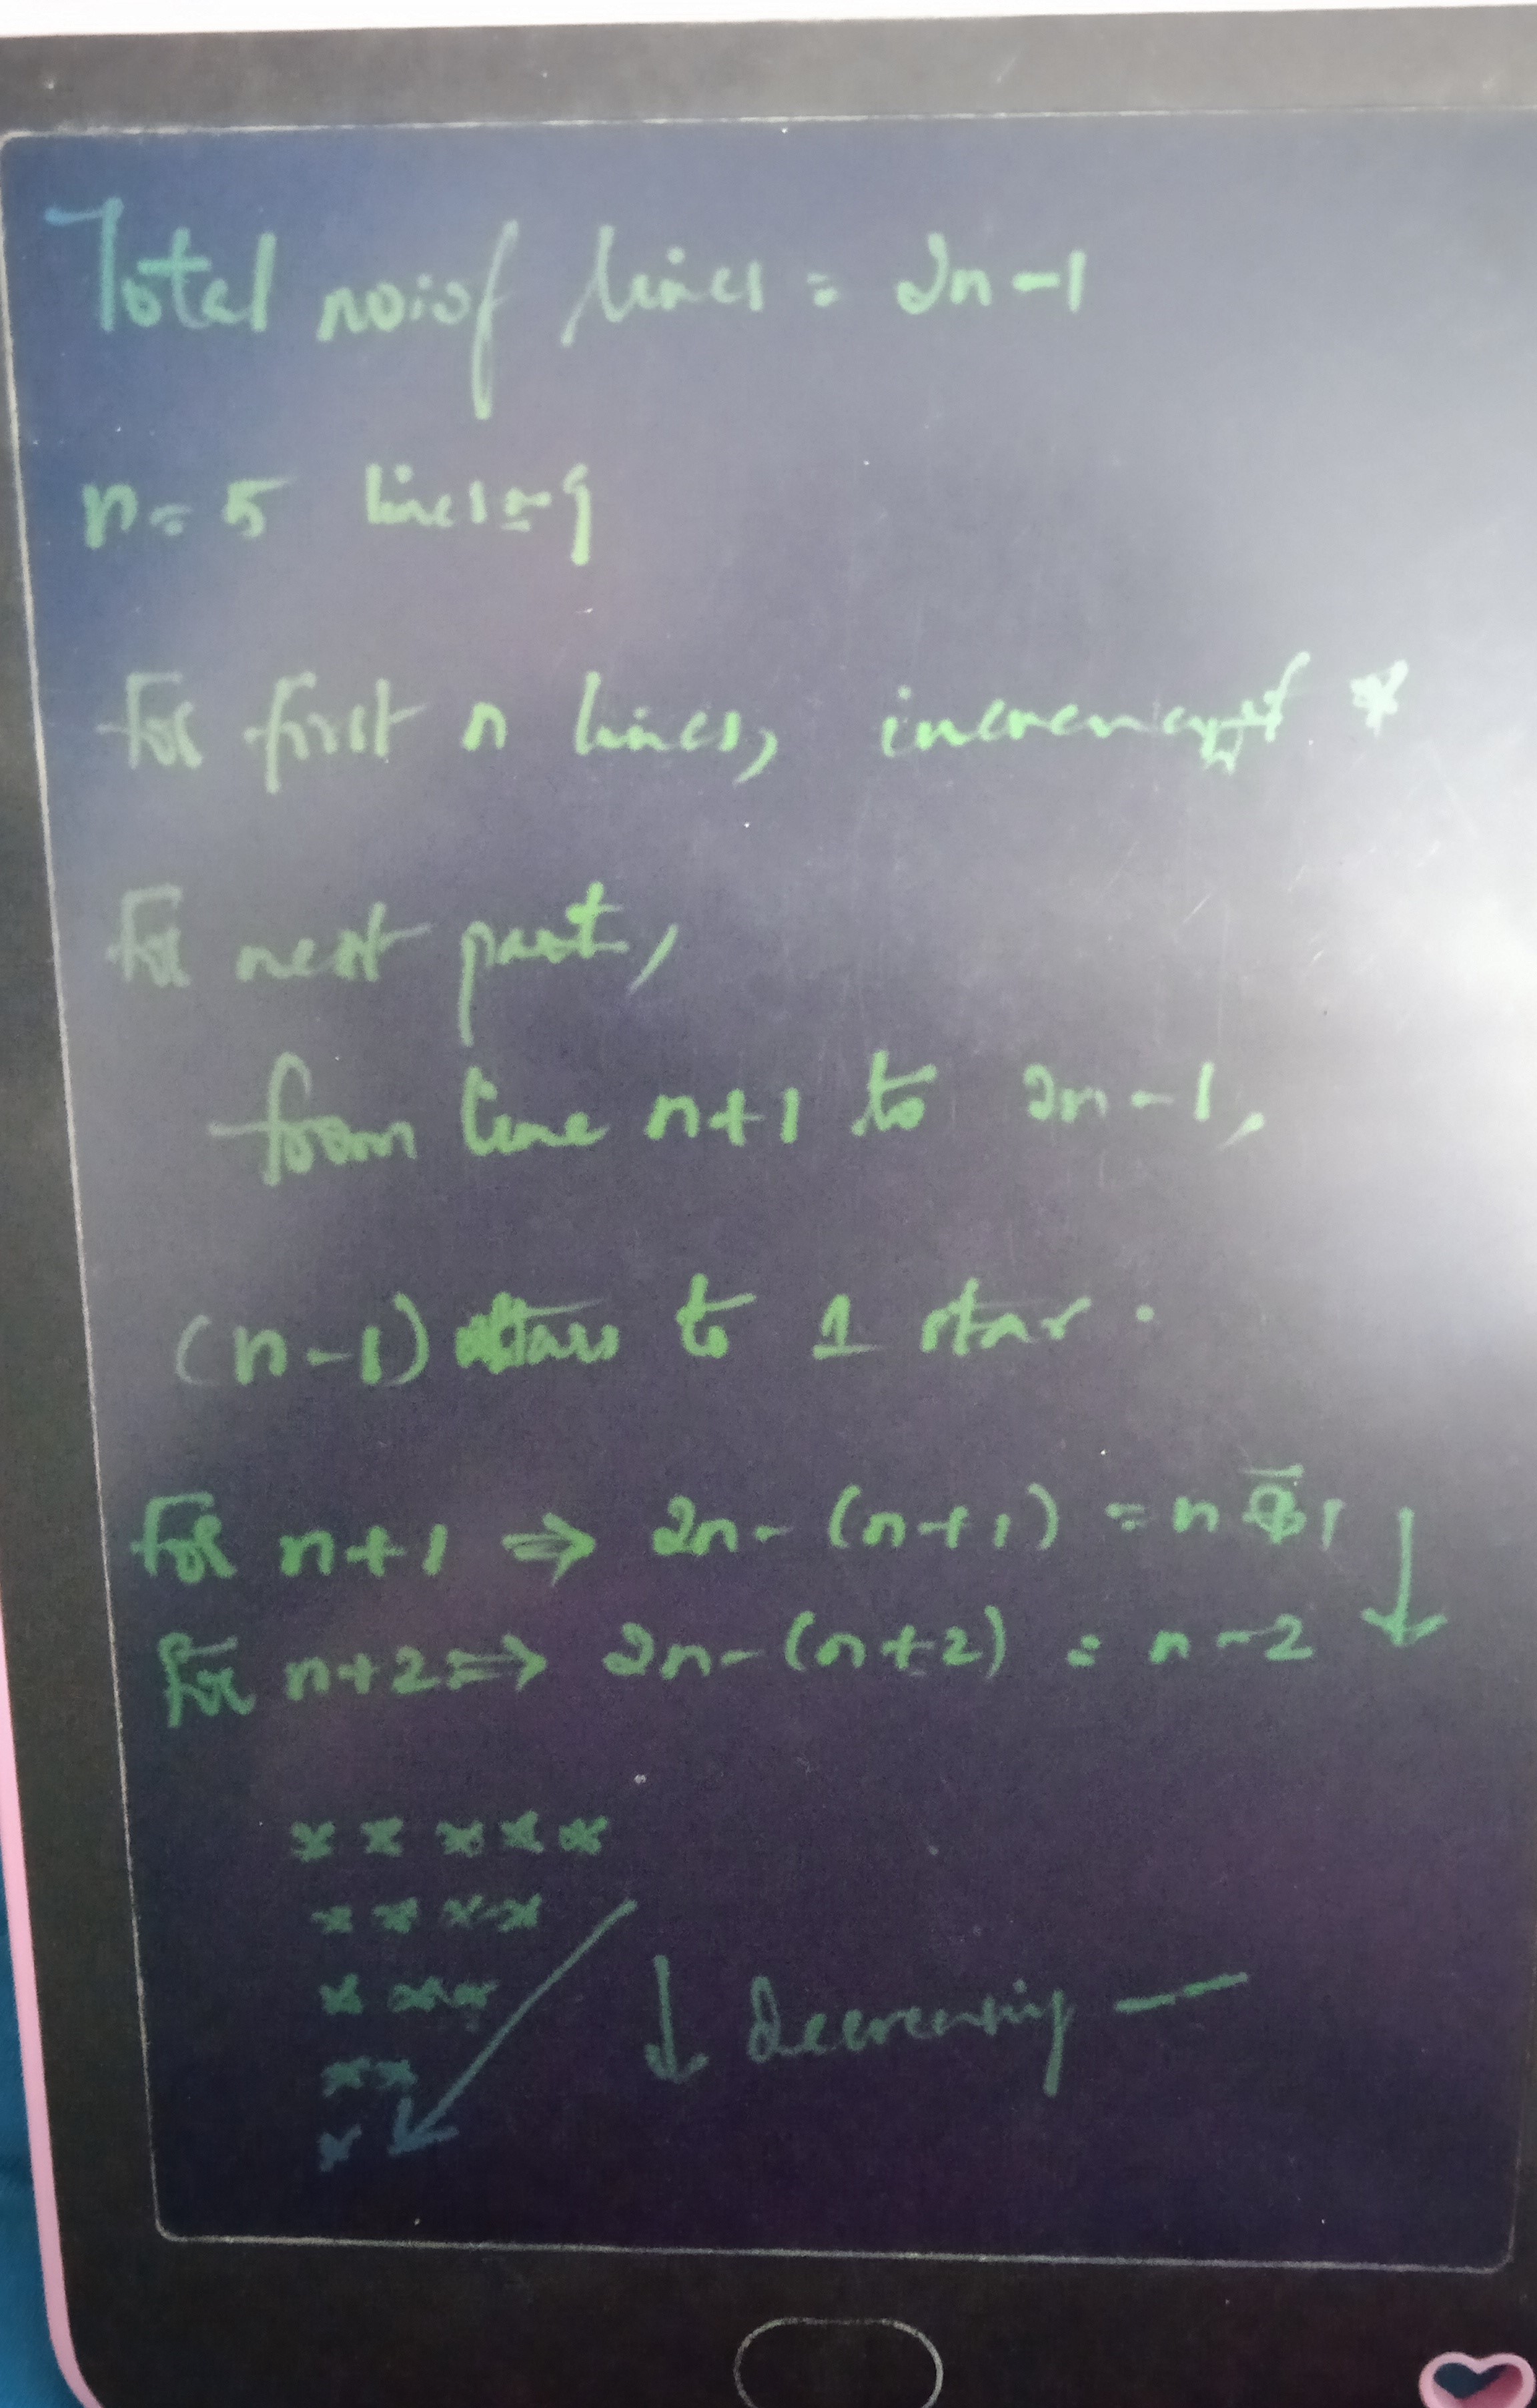 Total no. of lines = 2n-1
n = 5 lines = 9
For first n lines, increment *
For next part,
from line n+1 to 2n-1,
(n-1) stars to 1 star.
For n+1 ⇒ 2n-(n+1) = n-1 ↓
For n+2 ⇒ 2n-(n+2) = n-2
* * * * *
* * * *
* * *
* * ↓ Decreasing —
*